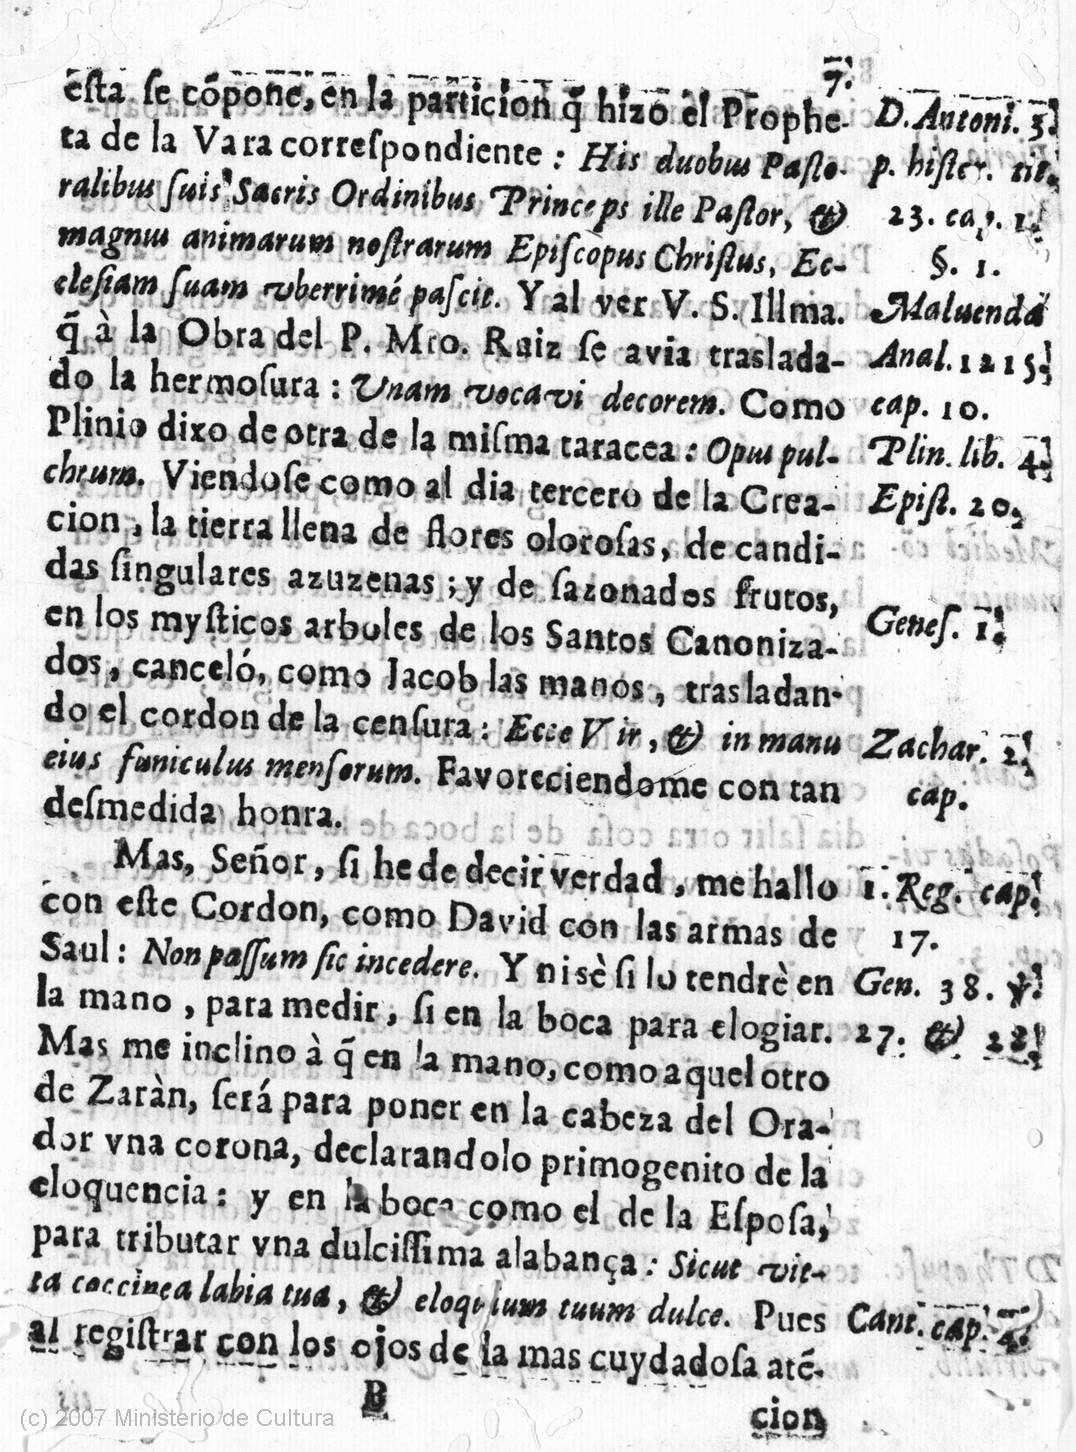 7.
esta se cõpone, en la particion q̃ hizo el Prophe-
ta de la Vara correspondiente : His duobus Pasto-
ralibus suis Sacris Ordinibus Princeps ille Pastor, &
magnus animarum nostrarum Episcopus Christus, Ec-
clesiam suam vberrimé pascit. Y al ver V. S. Illma.
q̃ à la Obra del P. Mro. Ruiz se avia traslada-
do la hermosura : Unam vocavi decorem. Como
Plinio dixo de otra de la misma taracea : Opus pul-
chrum. Viendose como al dia tercero de la Crea-
cion, la tierra llena de flores olorosas, de candi-
das singulares azuzenas ; y de sazonados frutos,
en los mysticos arboles de los Santos Canoniza-
dos, canceló, como Jacob las manos, trasladan-
do el cordon de la censura : Ecce Vir, & in manu
eius funiculus mensorum. Favoreciendome con tan
desmedida honra.
Mas, Señor, si he de decir verdad, me hallo
con este Cordon, como David con las armas de
Saul : Non possum sic incedere. Y ni sè si lo tendrè en
la mano, para medir, si en la boca para elogiar.
Mas me inclino à q̃ en la mano, como aquel otro
de Zaràn, será para poner en la cabeza del Ora-
dor vna corona, declarandolo primogenito de la
eloquencia : y en la boca como el de la Esposa,
para tributar vna dulcissima alabança : Sicut vit-
ta coccinea labia tua, & eloquium tuum dulce. Pues
al registrar con los ojos de la mas cuydadosa até-
B
cion
D. Antoni. 3.
p. histor. tit.
23. cap. 1.
§. 1.
Maluenda
Anal. 1215.
cap. 10.
Plin. lib. 4.
Epist. 20.
Genes. 1.
Zachar. 2.
cap.
1. Reg. cap.
17.
Gen. 38. ꝟ.
27. & 28.
Cant. cap. 4.
(c) 2007 Ministerio de Cultura